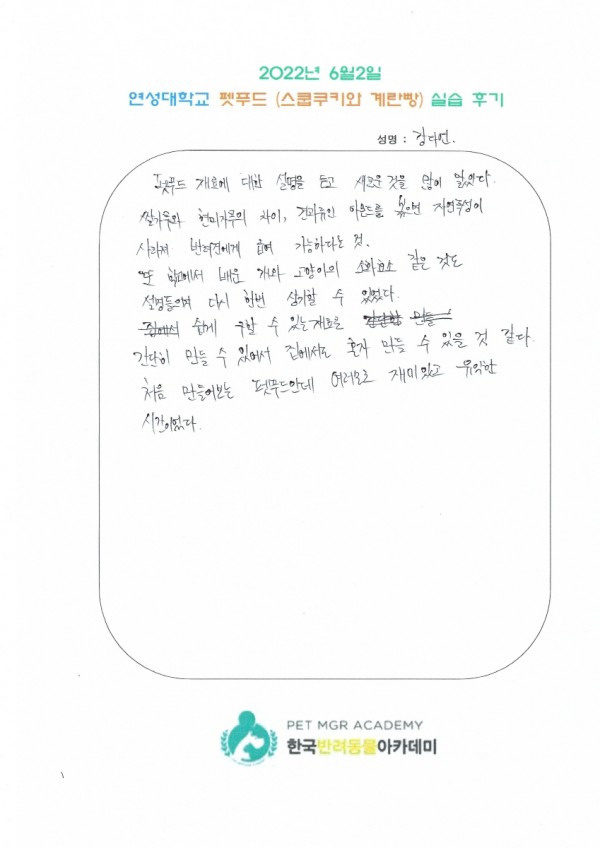 2022년 6월2일
연성대학교 펫푸드 (스쿱쿠키와 계란빵) 실습 후기
성명 : 강다연.
펫푸드 재료에 대한 설명을 듣고 새로운 것을 많이 알았다.
쌀가루와 현미가루의 차이, 견과류인 아몬드를 볶으면 자연독성이
사라져 반려견에게 급여 가능하다는 것.
또 학교에서 배운 개와 고양이의 소화효소 같은 것도
설명들으며 다시 한번 상기할 수 있었다.
집에서 쉽게 구할 수 있는 재료로 간단함 만들
간단히 만들 수 있어서 집에서도 혼자 만들 수 있을 것 같다.
처음 만들어보는 펫푸드인데 여러모로 재미있고 유익한
시간이었다.
PET MGR ACADEMY
한국반려동물아카데미